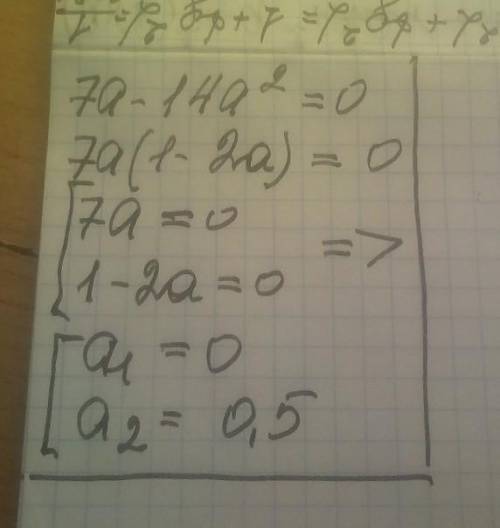 7a - 14a² = 0
7a(1 - 2a) = 0
[7a = 0
1 - 2a = 0 =>
[a₁ = 0
a₂ = 0,5